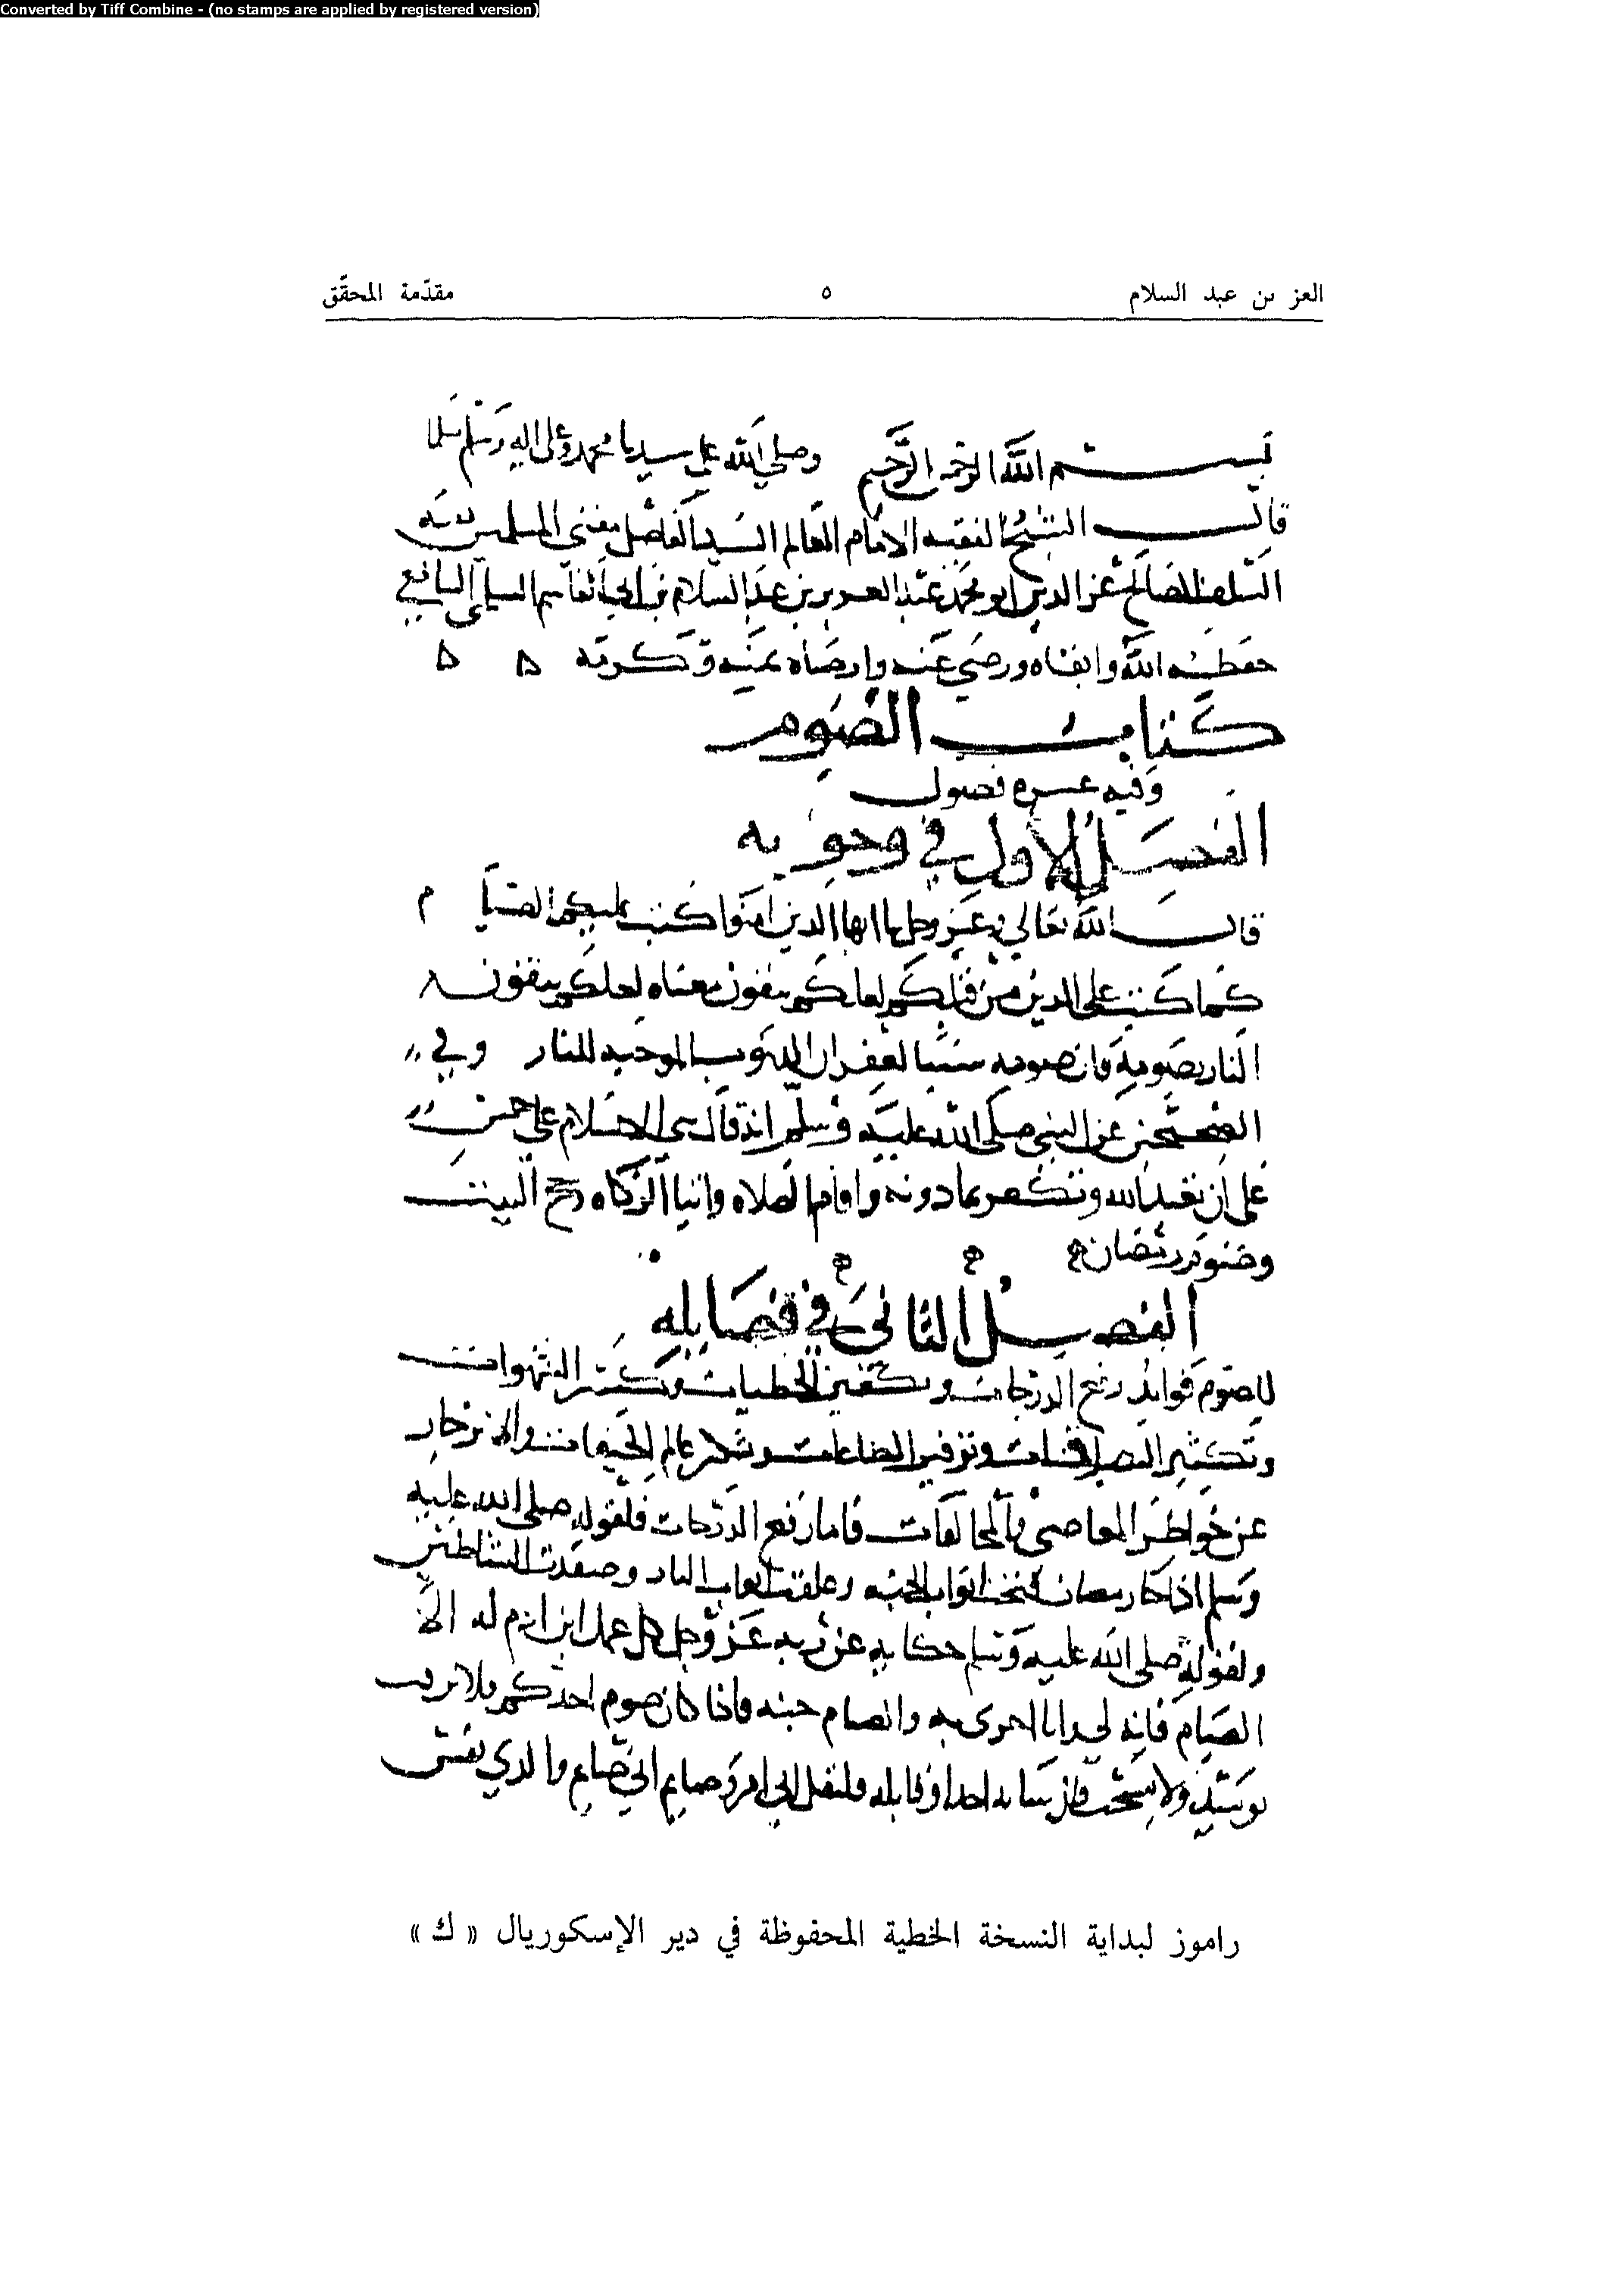 Converted by Tiff Combine - (no stamps are applied by registered version)
العز بن عبد السلام ٥ مقدّمة المحقّق
بسم الله الرحمن الرحيم وصلى الله على سيدنا محمد وعلى اله وسلم تسلما
قال الشيخ الفقيه الامام العالم السيد الفاضل مفتي المسلمين بقية
السلف الصالح عز الدين ابو محمد عبد العزيز بن عبد السلام بن ابي القاسم السلمي الشافعي
حفظه الله وابقاه ورضي عنه وارضاه بمنه وكرمه ه ه
كتاب الصوم
وفيه عشره فصول
الفصل الاول في وجوبه
قال الله تعالى عز وجل يا ايها الذين امنوا كتب عليكم الصيام
كما كتب على الذين من قبلكم لعلكم تتقون معناه لعلكم تتقون
النار بصومه فان صومه سببا لغفران الذنوب الموجبه للنار وفي
الصحيحين عن النبي صلى الله عليه وسلم انه قال بني الاسلام على خمس
على ان تعبد الله وتكفر بما دونه واقام الصلاه وايتا الزكاه وحج البيت
وصوم رمضان
الفصل الثاني في فضايله
للصوم فوايد رفع الدرجات وتكفير الخطيات وكسر الشهوات
وتكثير الصدقات وتوفير الطاعات وشكر عالم الخفيات والانزجار
عن خواطر المعاصي والمخالفات فاما رفع الدرجات فلقوله صلى الله عليه
وسلم اذا جا رمضان فتحت ابواب الجنه وغلقت ابواب النار وصفدت الشياطين
ولقوله صلى الله عليه وسلم حكايه عن ربه عز وجل كل عمل ابن ادم له الا
الصيام فانه لي وانا اجزى به والصيام جنه فاذا كان صوم احدكم فلا يرفث
يومئذ ولا يسخب فان سابه احد او قاتله فليقل اني امرؤ صايم اني صايم والذي نفس
راموز لبداية النسخة الخطية المحفوظة في دير الإسكوريال « ك »